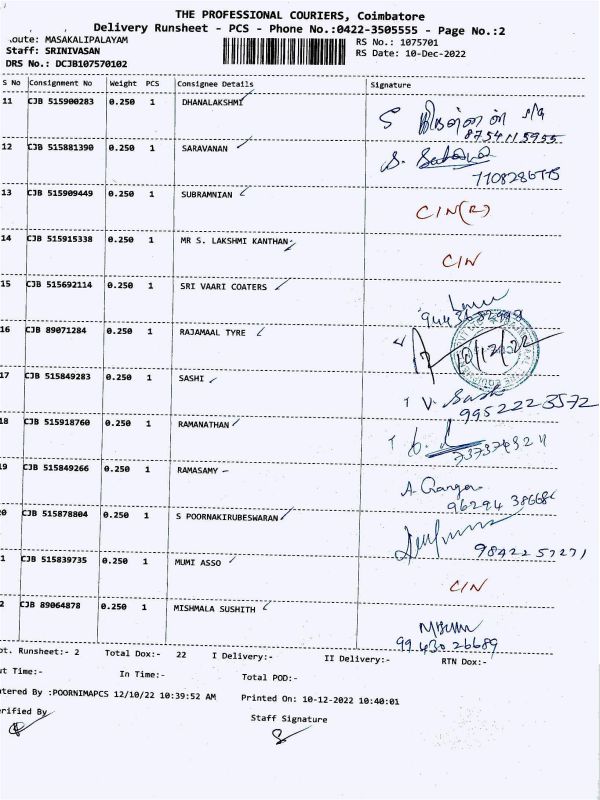 THE PROFESSIONAL COURIERS, Coimbatore
Delivery Runsheet - PCS - Phone No.:0422-3505555 - Page No.:2
oute: MASAKALIPALAYAM RS No.: 1075701
Staff: SRINIVASAN RS Date: 10-Dec-2022
DRS No.: DCJB107570102
S No Consignment No Weight PCS Consignee Details Signature
11 CJB 515900283 0.250 1 DHANALAKSHMI
8754115955
12 CJB 515881390 0.250 1 SARAVANAN
13 CJB 515909449 0.250 1 SUBRAMNIAN CIN(R)
14 CJB 515915338 0.250 1 MR S. LAKSHMI KANTHAN CIN
15 CJB 515692114 0.250 1 SRI VAARI COATERS
16 CJB 89071284 0.250 1 RAJAMAAL TYRE 10/12/22
17 CJB 515849283 0.250 1 SASHI V. Sashi
9952223572
18 CJB 515918760 0.250 1 RAMANATHAN
19 CJB 515849266 0.250 1 RAMASAMY
0 CJB 515878804 0.250 1 S POORNAKIRUBESWARAN
1 CJB 515839735 0.250 1 MUMI ASSO CIN
2 CJB 89064878 0.250 1 MISHMALA SUSHITH
99430 26689
ot. Runsheet:- 2 Total Dox:- 22 I Delivery:- II Delivery:- RTN Dox:-
ut Time:- In Time:- Total POD:-
ntered By :POORNIMAPCS 12/10/22 10:39:52 AM Printed On: 10-12-2022 10:40:01
erified By Staff Signature